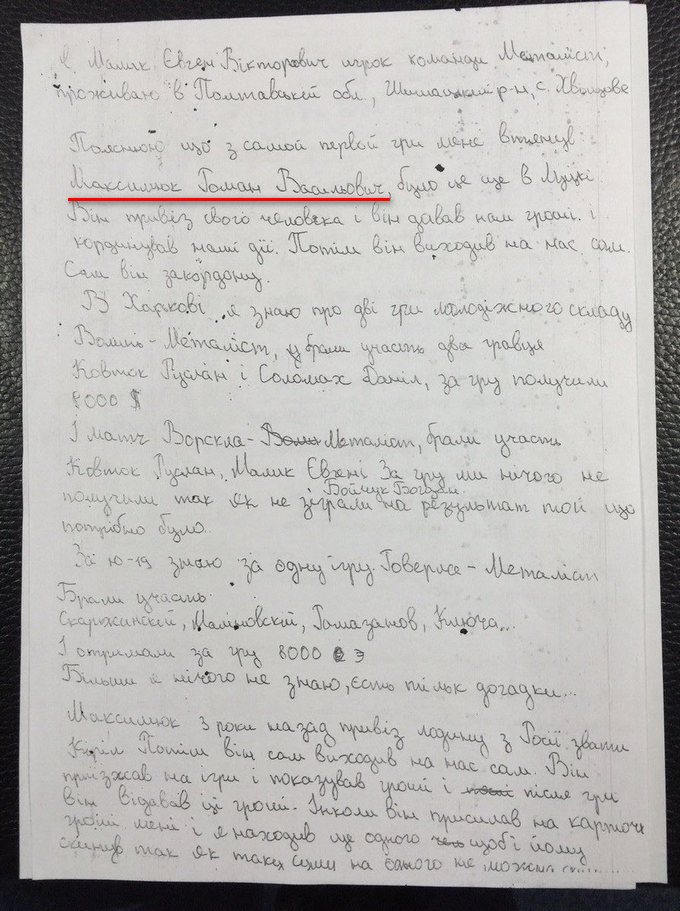 Я Малик Євген Вікторович игрок команди Металіст,
проживаю в Полтавській обл., Шишацкий р-н, с.
Пояснюю що з самой первой гри мене втянув
Максимюк Роман Васильович, було це ще в Луцкі
Він привіз свого человека і він давав нам гроші. і
кординував наші дії. Потім він виходив на нас сам.
Сам він закордону.
В Харкові я знаю про дві гри молодіжного складу
Волинь-Металіст, брали участь два гравця
Ковтюк Руслан і Соломах Даніл, за гру получили
8000 $
І матч Ворскла-Металіст, брали участь
Ковтюк Руслан, Малик Євхені За гру ми нічого не
Бойчук Богдан
получили так як не зіграли на результат той що
потрібно було.
За ю-19 знаю за одну ігру. Говерла-Металіст
Брали участь:
Скаржинскій, Маліновскій, Рамазанов, Ключа...
І отримали за гру 8000
Більши я нічого не знаю, єсть тільк догадки...
Максимюк 3 роки назад привіз людину з Росії звати
Кіріл Потім він сам виходив на нас сам. Він
приїзжав на ігри і показував гроші і після гри
він відавав ці гроші. Інколи він присилав на карточк
гроші мені і я находив ще одного щоб і йому
скинув так як таку суму на одного не можна